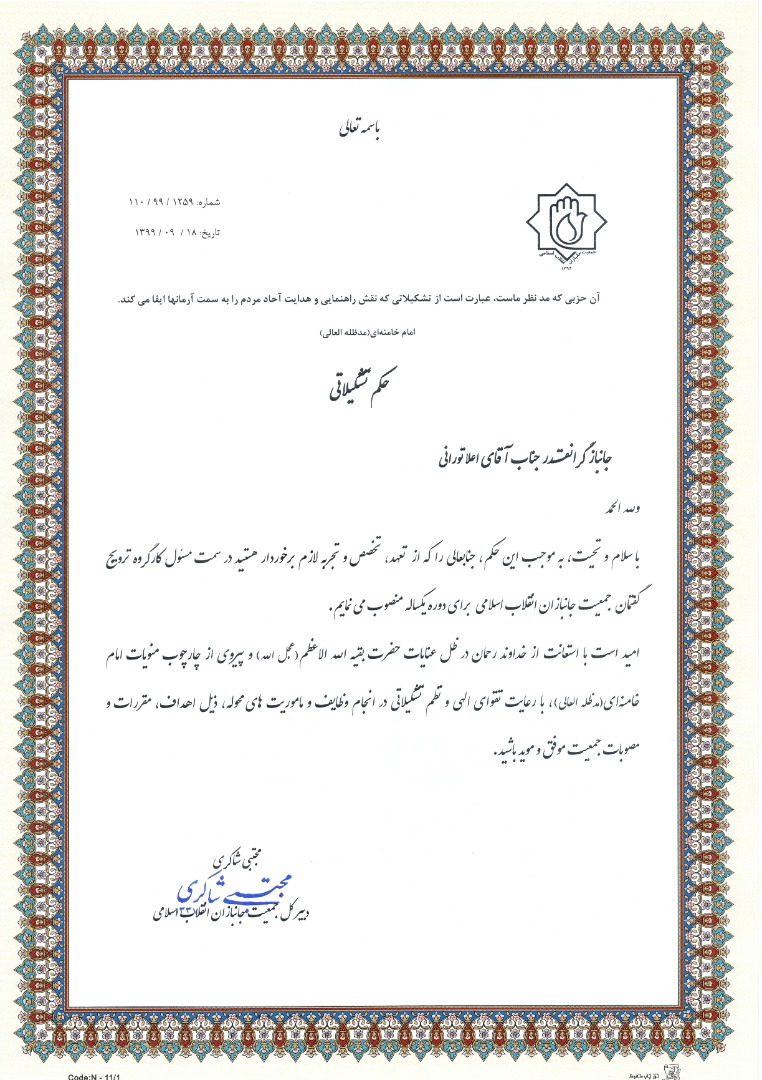 باسمه تعالی
شماره: ۱۲۵۹ / ۹۹ / ۱۱۰
تاریخ: ۱۸ / ۰۹ / ۱۳۹۹
جمعیت جانبازان انقلاب اسلامی
آن حزبی که مد نظر ماست، عبارت است از تشکیلاتی که نقش راهنمایی و هدایت آحاد مردم را به سمت آرمانها ایفا می کند.
امام خامنه‌ای(مدظله العالی)
حکم تشکیلاتی
جانباز گرانقدر جناب آقای اعلا تورانی
ولله الحمد
با سلام و تحیت، به موجب این حکم، جنابعالی را که از تعهد، تخصص و تجربه لازم برخوردار هستید در سمت مسئول کارگروه ترویج
گفتمان جمعیت جانبازان انقلاب اسلامی برای دوره یکساله منصوب می نمایم.
امید است با استعانت از خداوند رحمان در ظل عنایات حضرت بقیه الله الاعظم(عجل الله) و پیروی از چارچوب منویات امام
خامنه‌ای(مدظله العالی)، با رعایت تقوای الهی و نظم تشکیلاتی در انجام وظایف و ماموریت های محوله، ذیل اهداف، مقررات و
مصوبات جمعیت موفق و موید باشید.
مجتبی شاکری
مجتبی شاکری
دبیر کل جمعیت جانبازان انقلاب اسلامی
Code:N - 11/1